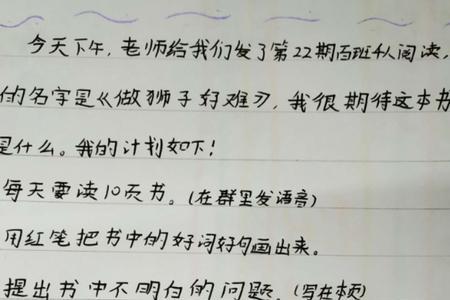 今天下午,老师给我们发了第22期百班千人阅读,
的名字是《做狮子好难》,我很期待这本书
是什么。我的计划如下!
每天要读10页书。(在群里发语音)
用红笔把书中的好词好句画出来。
提出书中不明白的问题。(写在本页)